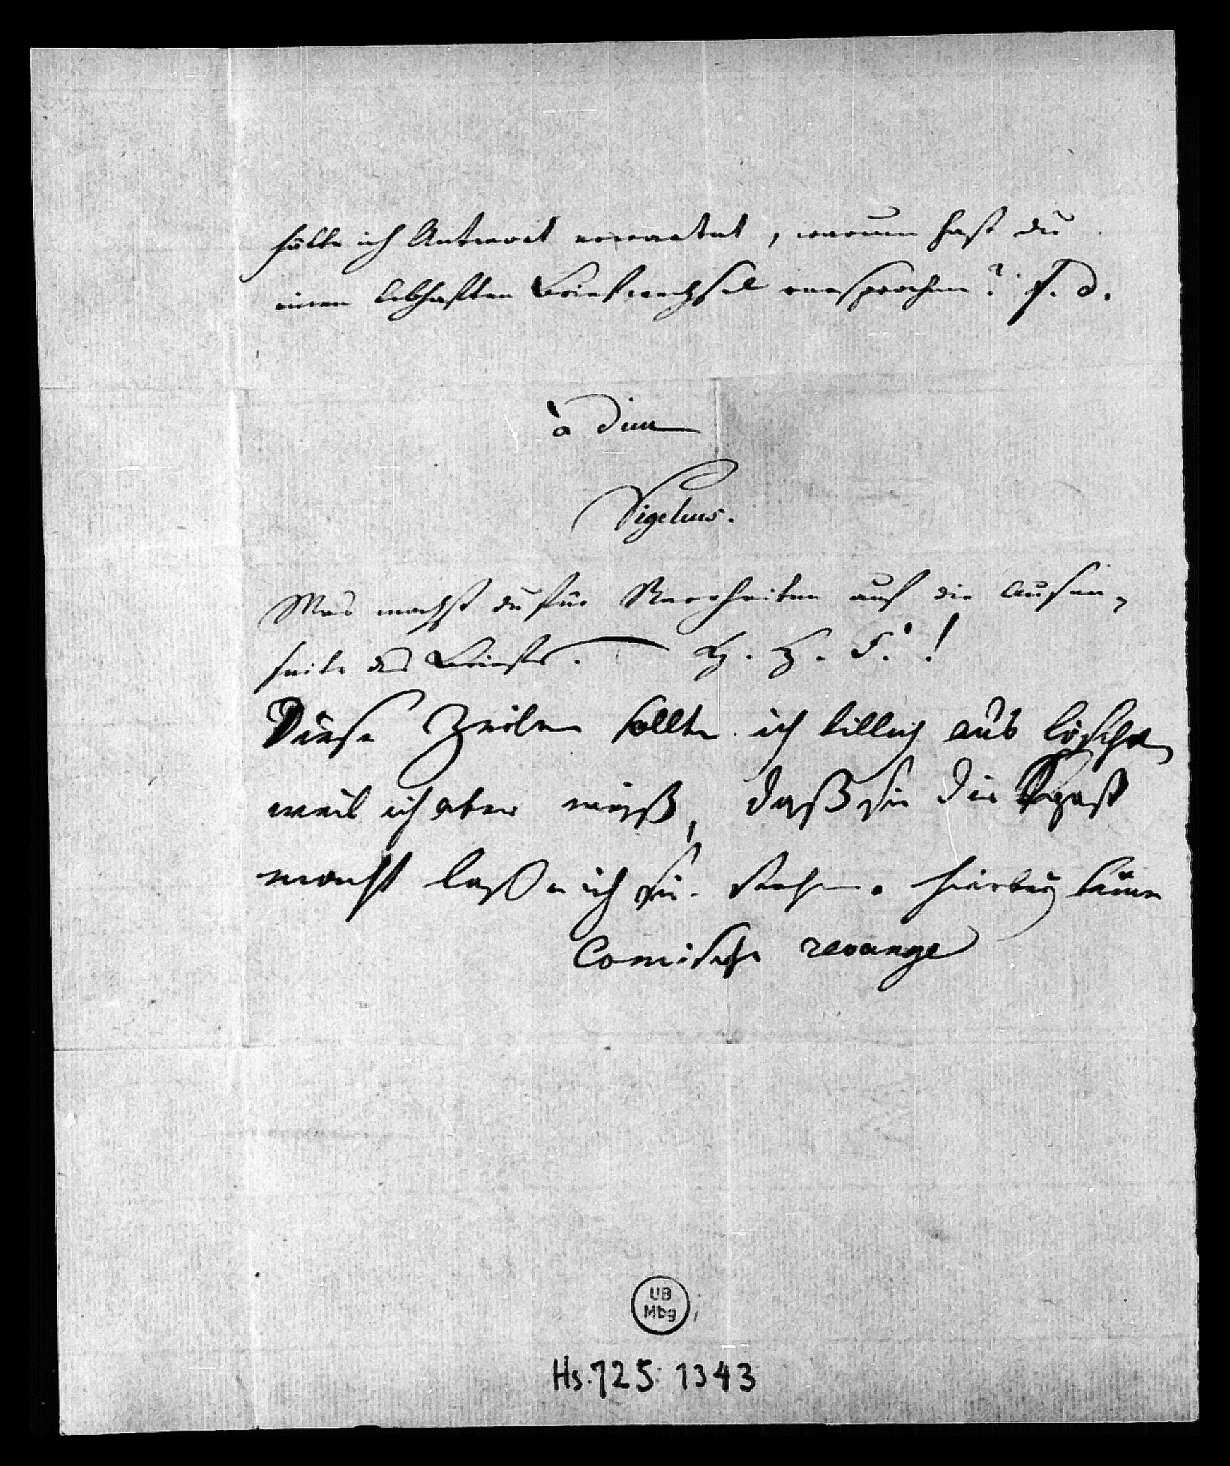 hätte ich Antwort erwartet, warum hast du
einen lebhaften Briefwechsel versprochen? F. d.
à dieu
Sigelus.
Was machst du für Narrheiten auf die Aussen-
seite des Briefes. — H. H. F.!
Diese Zeilen sollte ich billig aus löschen
weil ich aber weiß, daß sie dir Spaß
macht laß ich sie stehen. hierbey keine
Comische revange
UB
Mbg
Hs. 725: 1343